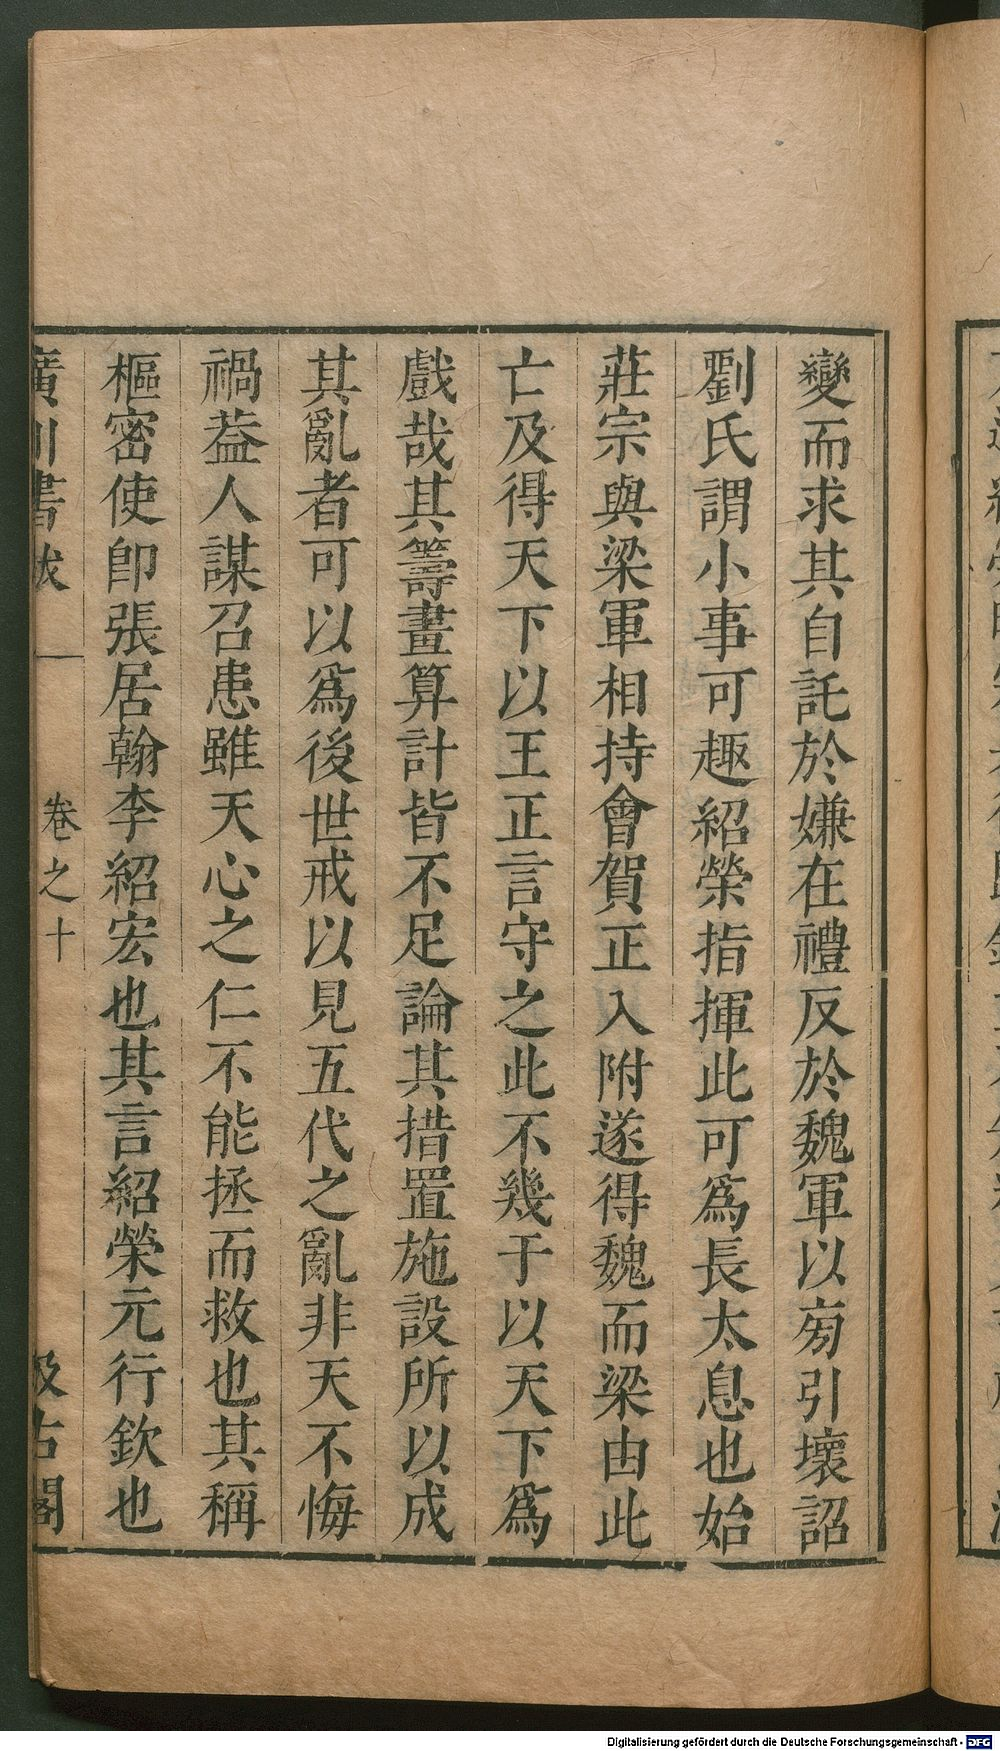 變而求其自託於嫌在禮反於魏軍以旁引壞詔
劉氏謂小事可趣紹榮指揮此可爲長太息也始
莊宗與梁軍相持會賀正入附遂得魏而梁由此
亡及得天下以王正言守之此不幾于以天下爲
戲哉其籌畫算計皆不足論其措置施設所以成
其亂者可以爲後世戒以見五代之亂非天不悔
禍葢人謀召患雖天心之仁不能拯而救也其稱
樞密使卽張居翰李紹宏也其言紹榮元行欽也
廣川書跋 卷之十 汲古閣
Digitalisierung gefördert durch die Deutsche Forschungsgemeinschaft - DFG